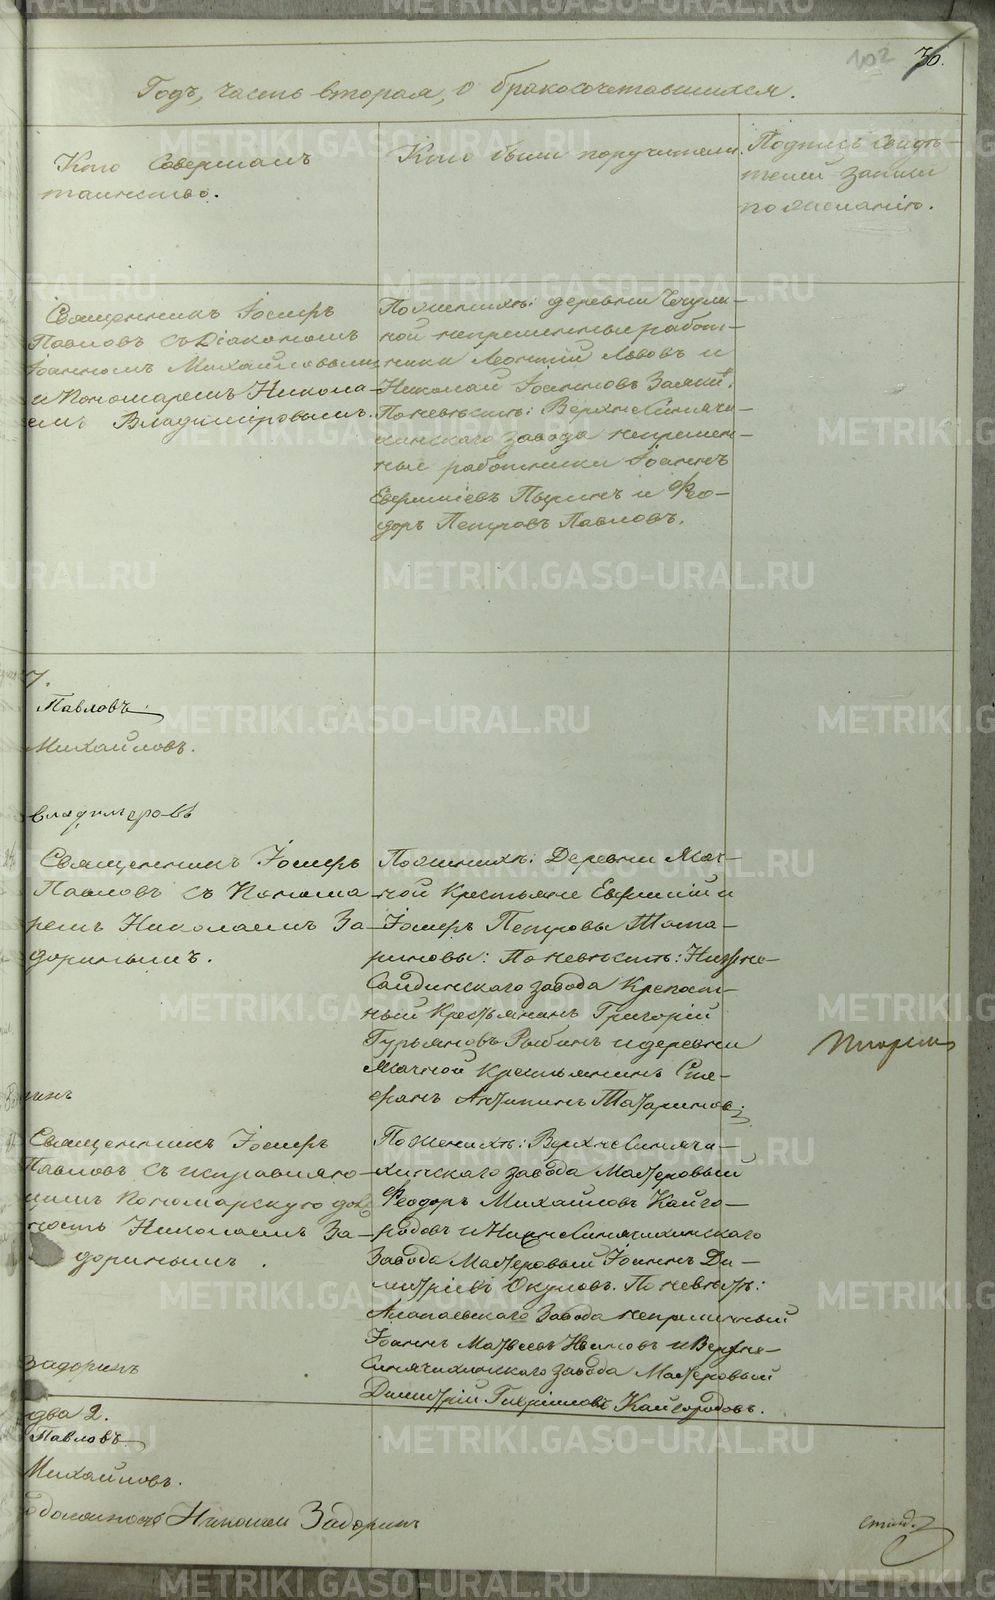 102 36.
Годъ, часть вторая, о бракосочетавшихся.
Кто совершалъ
таинство.
Кто были поручители.
Подпись свидѣ-
телей записи
по желанію.
Священникъ Іосифъ
Павловъ съ Діакономъ
Іоанномъ Михайловымъ
и Пономаремъ Никола-
емъ Владиміровымъ.
По женихѣ: деревни
ной непременные работ-
ники Леонтій Львовъ и
Николай Іоанновъ
По невѣстѣ: Верхне Синячи-
хинскаго завода непремен-
ные работники Іоаннъ
Евфиміевъ и Фео-
доръ Петровъ Павловъ.
7.
Павловъ
Михайловъ.
Владимеровъ
Священникъ Іосифъ
Павловъ съ Понома-
ремъ Николаемъ За-
доринымъ.
По женихѣ: Деревни Мач-
ной Крестьяне Евфимій и
Іосифъ Петровы Тата-
риновы: По невѣстѣ: Нижне-
Салдинскаго завода Крепост-
ный Крестьянинъ Григорій
Гурьяновъ Рыбинъ и деревни
Мачной Крестьянинъ Сте-
фанъ Антипинъ Татариновъ.
Священникъ Іосифъ
Павловъ съ исправляю-
щимъ пономарскую дол
ность Николаемъ За-
доринымъ.
По женихѣ: Верхне Синячи-
хинскаго завода Мастеровый
Феодоръ Михайловъ Кайго-
родовъ и Нижне Синячихинскаго
Завода Мастеровый Іоаннъ Ди-
митріевъ Окуловъ. По невѣстѣ:
Алапаевскаго Завода непременный
Іоаннъ Матвеевъ Ивановъ и Верхне-
Синячихинскаго завода Мастеровый
Димитрій Гавриловъ Кайгородовъ.
Задоринъ
два 2.
Павловъ
Михайловъ.
должность Николай Задоринъ
METRIKI.GASO-URAL.RU